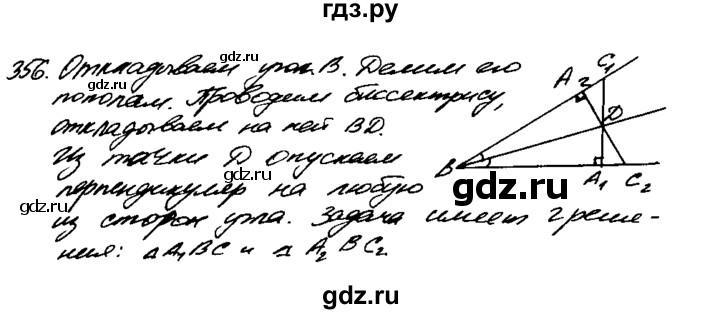 гдз.ру
356. Откладываем угол B. Делим его
пополам. Проводим биссектрису,
откладываем на ней BD.
Из точки D опускаем
перпендикуляр на любую
из сторон угла. Задача имеет 2 реше-
ния: △ A₁BC и △ A₂BC₂.
A₂
C₁
D
B
A₁
C₂
gdz.ru
gdz.ru
gdz.ru
gdz.ru
gdz.ru
gdz.ru
gdz.ru
gdz.ru
gdz.ru